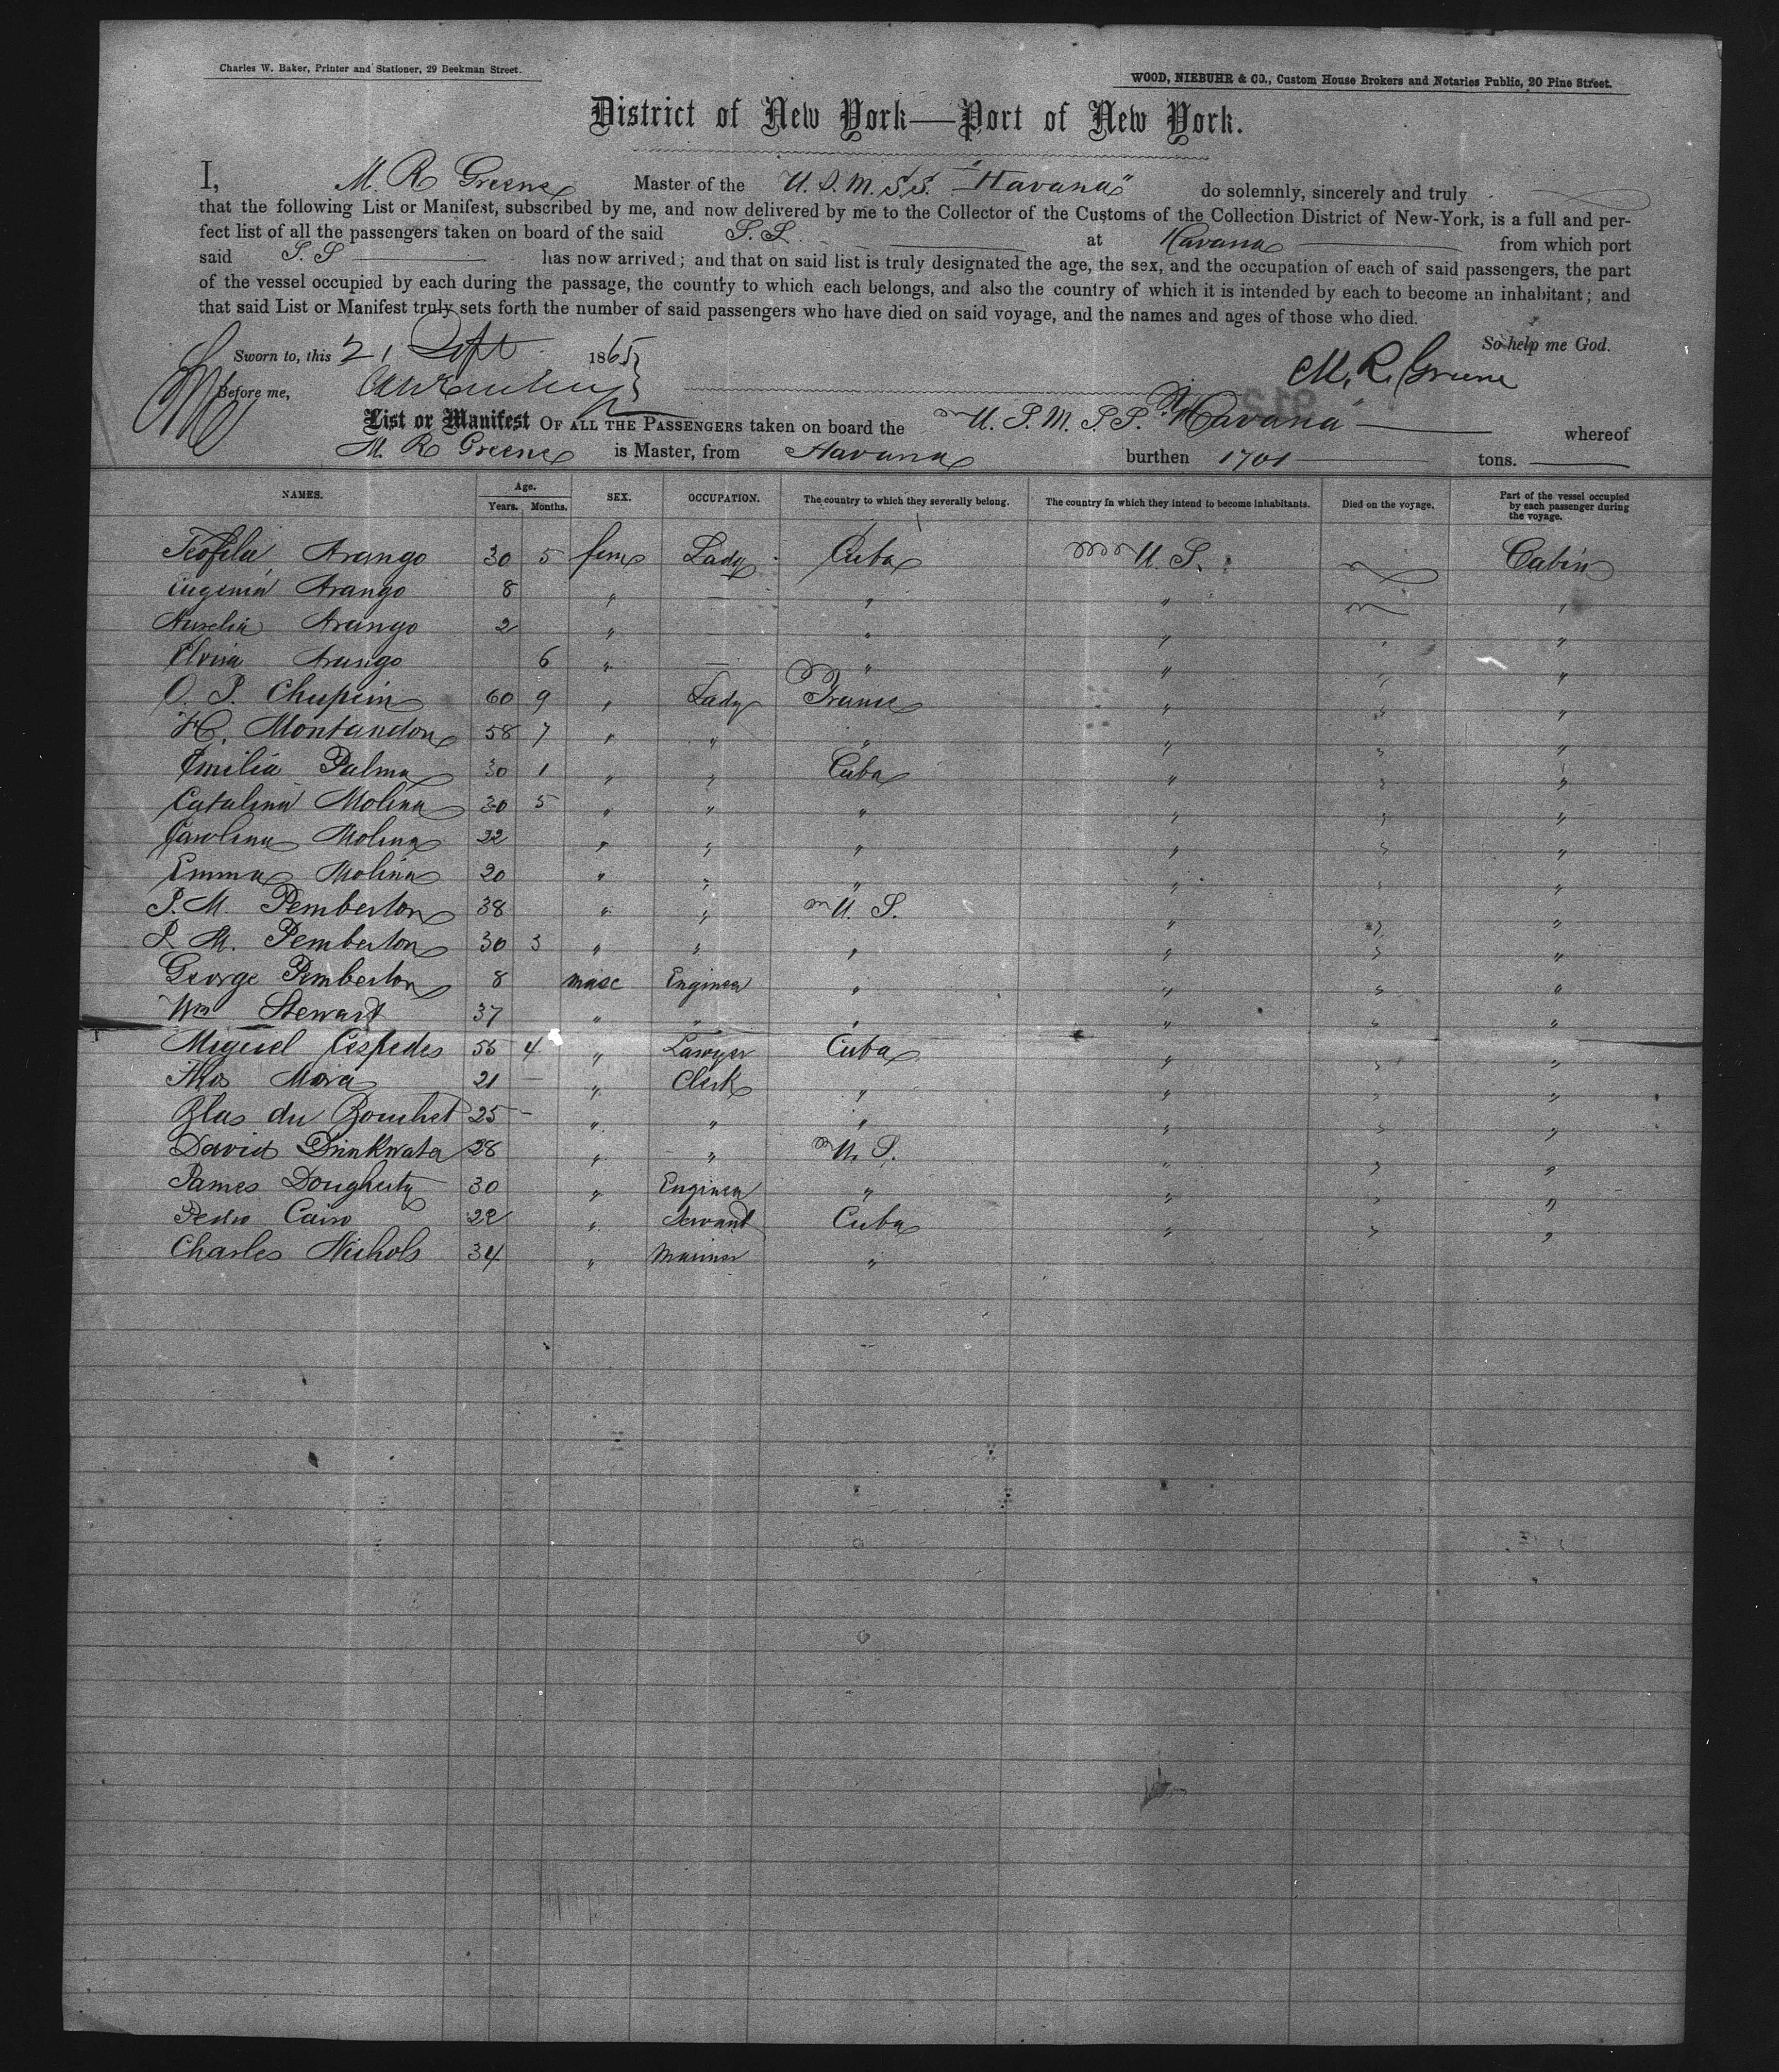 Charles W. Baker, Printer and Stationer, 29 Beekman Street.
WOOD, NIEBUHR & CO., Custom House Brokers and Notaries Public, 20 Pine Street.
District of New York—Port of New York.
I, M. R Greene Master of the U. S. M. S.S. "Havana" do solemnly, sincerely and truly
that the following List or Manifest, subscribed by me, and now delivered by me to the Collector of the Customs of the Collection District of New-York, is a full and per-
fect list of all the passengers taken on board of the said S. S. at Havana from which port
said S. S has now arrived; and that on said list is truly designated the age, the sex, and the occupation of each of said passengers, the part
of the vessel occupied by each during the passage, the country to which each belongs, and also the country of which it is intended by each to become an inhabitant; and
that said List or Manifest truly sets forth the number of said passengers who have died on said voyage, and the names and ages of those who died.
So help me God.
Sworn to, this 21 Sept 1865
M. R. Greene
Before me,
List or Manifest OF ALL THE PASSENGERS taken on board the U. S. M. S. S. "Havana" whereof
M. R Greene is Master, from Havana burthen 1701 tons.
NAMES. Age. Years. Months. SEX. OCCUPATION. The country to which they severally belong. The country in which they intend to become inhabitants. Died on the voyage. Part of the vessel occupied by each passenger during the voyage.
Teofila Arango 30 5 fem Lady Cuba U. S. Cabin
Eugenia Arango 8 " — " " "
Aurelia Arango 2 " — " " " "
Elvira Arango 6 " — " " " "
O. P. Chupein 60 9 " Lady France " " "
H. Montandon 58 7 " " " " " "
Emilia Palma 30 1 " " Cuba " " "
Catalina Molina 30 5 " " " " " "
Carolina Molina 22 " " " " " "
Emma Molina 20 " " " " " "
S. M. Pemberton 38 " " U. S. " " "
S. M. Pemberton 30 3 " " " " " "
George Pemberton 8 masc Engineer " " " "
Wm Stewart 37 " " " " " "
Miguel Cespedes 55 4 " Lawyer Cuba " " "
Thos Mora 21 — " Clerk " " " "
Blas du Bouchet 25 — " " " " " "
David Drinkwater 28 " " U. S. " " "
James Dougherty 30 " Engineer " " " "
Pedro Cairo 22 " Servant Cuba " " "
Charles Nichols 34 " Mariner "